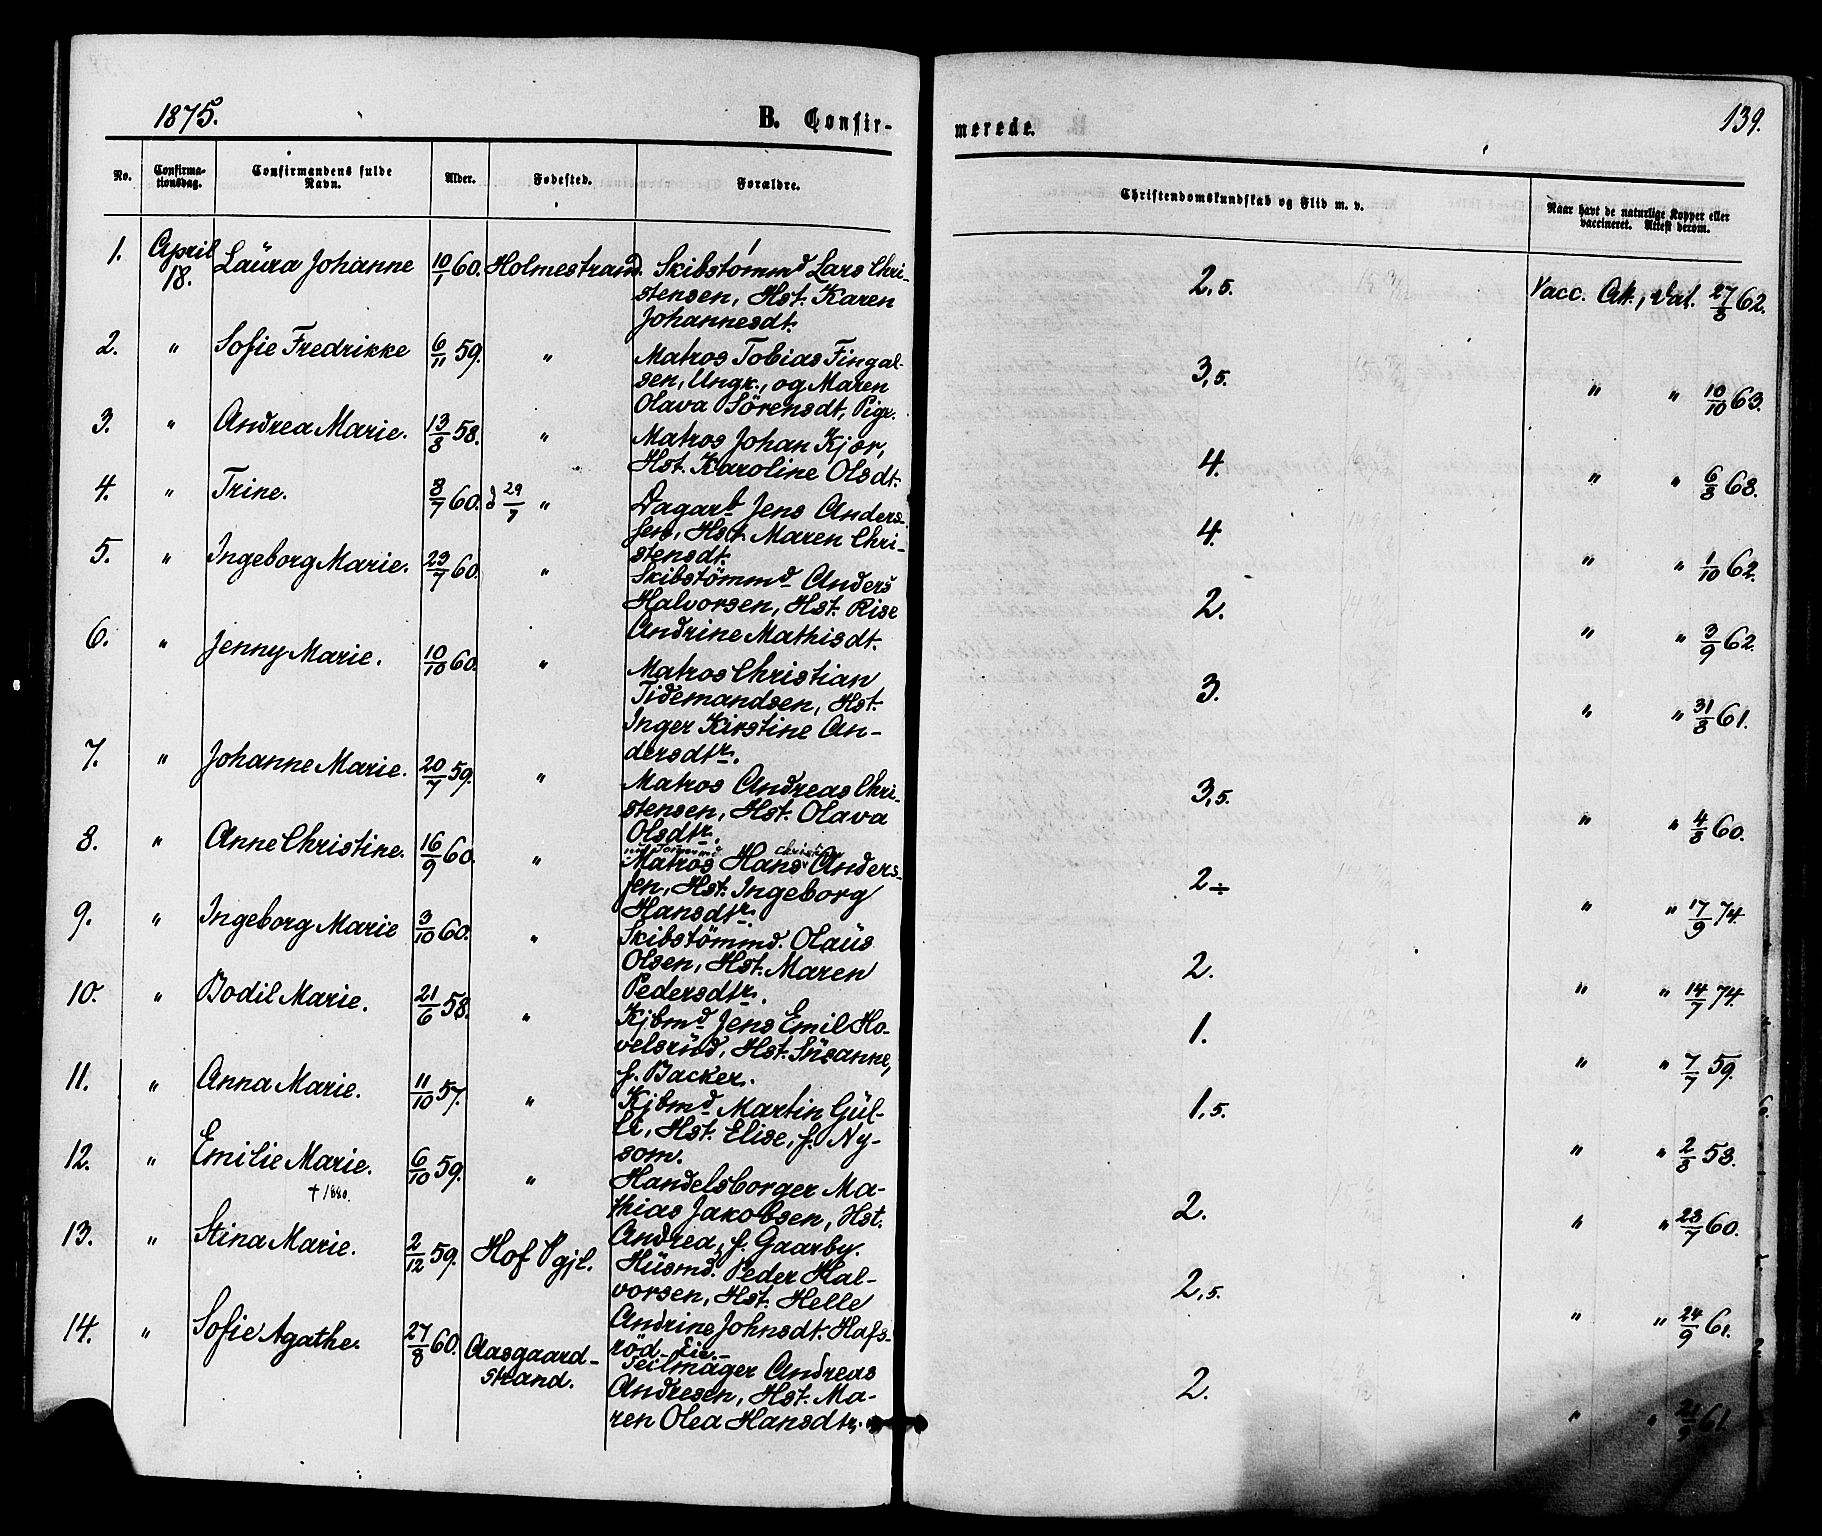 1875.
B. Confir-
merede.
139.
No.
Confirma-
tionsdag.
Confirmandens fulde
Navn.
Alder.
Fødested.
Forældre.
Christendomskundskab og Flid m. v.
Naar havt de naturlige Kopper eller
vaccineret. Attest derom.
1. April 18. Laura Johanne 10/1 60. Holmestrand. Skibstømmd Lars Chri-
stensen, Hst. Karen
Johannesdt.
2,5. Vacc. Att., dat. 27/8 62.
2. " Sofie Fredrikke 6/11 59. " Matros Tobias Fingal-
sen, Ungk., og Maren
Olava Sörensdt, Pige.
3,5. " " 10/10 63.
3. " Andrea Marie. 13/8 58. " Matros Johan Kjær,
Hst. Karoline Olsdt.
4. " " 6/8 68.
4. " Trine. 8/7 60. d 29/7 " Dagarb Jens Anders-
sen, Hst. Maren Chri-
stensdt.
4. " " 1/10 62.
5. " Ingeborg Marie. 23/7 60. " Skibstömmd Anders
Halvorsen, Hst. Rise
Andrine Mathisdt.
2. " " 3/9 62.
6. " Jenny Marie. 10/10 60. " Matros Christian
Tidemandsen, Hst.
Inger Kirstine An-
dersdtr.
3. " " 31/8 61.
7. " Johanne Marie. 20/7 59. " Matros Andreas Chri-
stensen, Hst. Olava
Olsdtr.
3,5. " " 4/8 60.
8. " Anne Christine. 16/9 60. " Matros Hans Anders-
sen, Hst. Ingeborg
Hansdtr.
2÷ " " 17/9 74.
9. " Ingeborg Marie 3/10 60. " Skibstömmd. Olaus
Olsen, Hst. Maren
Pedersdtr.
2. " " 14/7 74.
10. " Bodil Marie. 21/6 58. " Kjbmd Jens Emil Ho-
velsrüd, Hst. Süsanne,
f. Backer.
1. " " 7/7 59.
11. " Anna Marie. 11/10 57. " Kjbmd Martin Gül-
li, Hst. Elise, f. Ny-
som.
1,5. " " 2/8 58.
12. " Emilie Marie. 6/10 59. " Handelsborger Ma-
thias Jakobsen, Hst.
Andrea, f. Gaarby.
† 1880.
2. " " 23/7 60.
13. " Stina Marie. 2/12 59. Hof Pgjl. Hüsmd. Peder Hal-
vorsen, Hst. Helle
Andrine Johnsdt. Hafs-
röd Eie.
2,5. " " 24/9 61.
14. " Sofie Agathe. 27/8 60. Aasgaard-
strand. Seilmager Andreas
Andresen, Hst. Ma-
ren Olea Hansdtr.
2. " " 21/9 61.